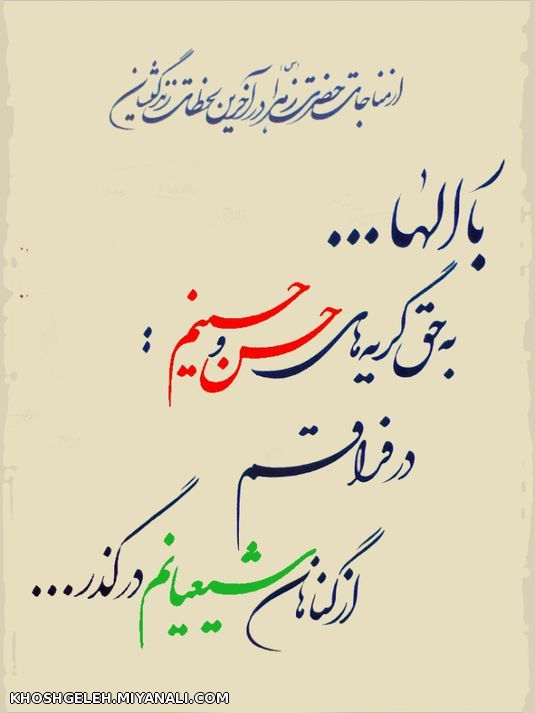 از مناجات حضرت زهرا (س) در آخرین لحظات زندگیشان
بار الها ...
به حق گریه های حسن و حسینم :
در فراقم
از گناهان شیعیانم درگذر ...
KHOSHGELEH.MIYANALI.COM